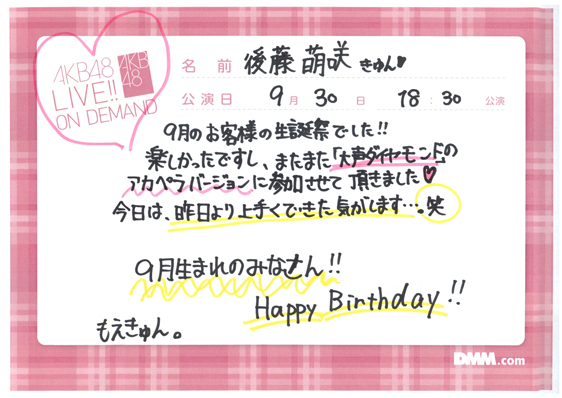 AKB48
LIVE!!
ON DEMAND
AKB
48
名 前 後藤 萌咲 きゅん♥
公演日 9月 30日 18:30 公演
9月のお客様の生誕祭でした!!
楽しかったですし、またまた「大声ダイヤモンド」の
アカペラバージョンに参加させて頂きました♥
今日は、昨日より上手くできた気がします…。笑
9月生まれのみなさん!!
Happy Birthday!!
もえきゅん。
DMM.com